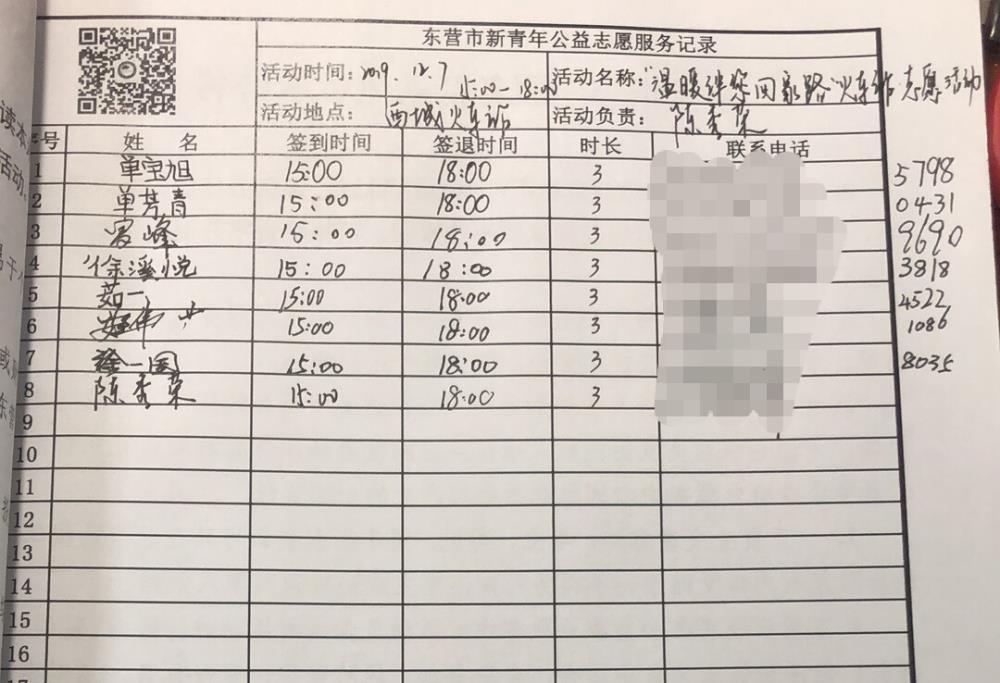 东营市新青年公益志愿服务记录
活动时间：2019.12.7 15:00-18:00 活动名称："温暖伴你回家路"火车站志愿活动
活动地点： 西城火车站 活动负责： 陈秀荣
序号 姓 名 签到时间 签退时间 时长 联系电话
1 单宝旭 15:00 18:00 3 5798
2 单芳青 15:00 18:00 3 0431
3 峰 15:00 18:00 3 9690
4 徐溪悦 15:00 18:00 3 3818
5 茹一 15:00 18:00 3 4522
6 15:00 18:00 3 1086
7 徐一国 15:00 18:00 3 8035
8 陈秀荣 15:00 18:00 3
9
10
11
12
13
14
15
16
17
读本
活动